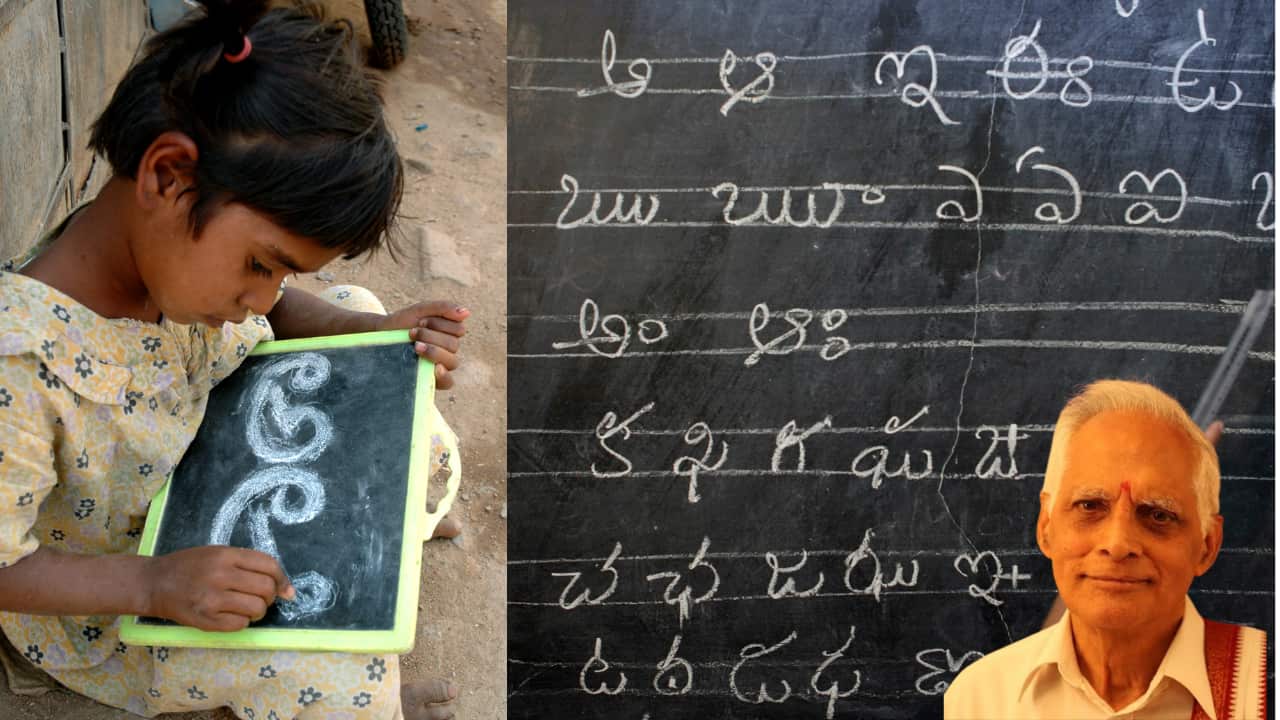 అ ఆ ఇ ఈ ఉ
ఋ ౠ ఎ ఏ ఐ
అం అః
క ఖ గ ఘ ఙ
చ ఛ జ ఝ ఞ
ట ఠ డ ఢ ణ